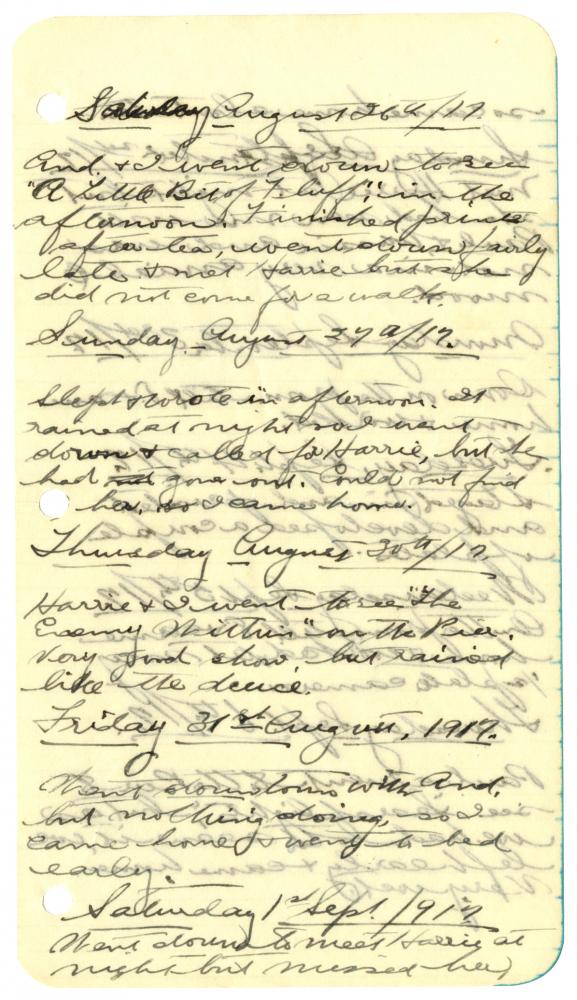 Saturday August 26th/17.
And. & I went down to see
"A Little Bit of Fluff", in the
afternoon. Finished prints
after tea, went down fairly
late & met Harrie but she
did not come for a walk.
Sunday August 27th/17.
Slept & wrote in afternoon. It
rained at night so I went
down & called for Harrie, but she
had gone out. Could not find
her, so I came home.
Thursday August 30th/17.
Harrie & I went to see "The
Enemy Within" on the Pier.
Very good show, but rained
like the deuce.
Friday 31st August, 1917.
Went down town with And.
but nothing doing, so I
came home & went to bed
early.
Saturday 1st Sept. 1917
Went down to meet Harrie at
night but missed her,